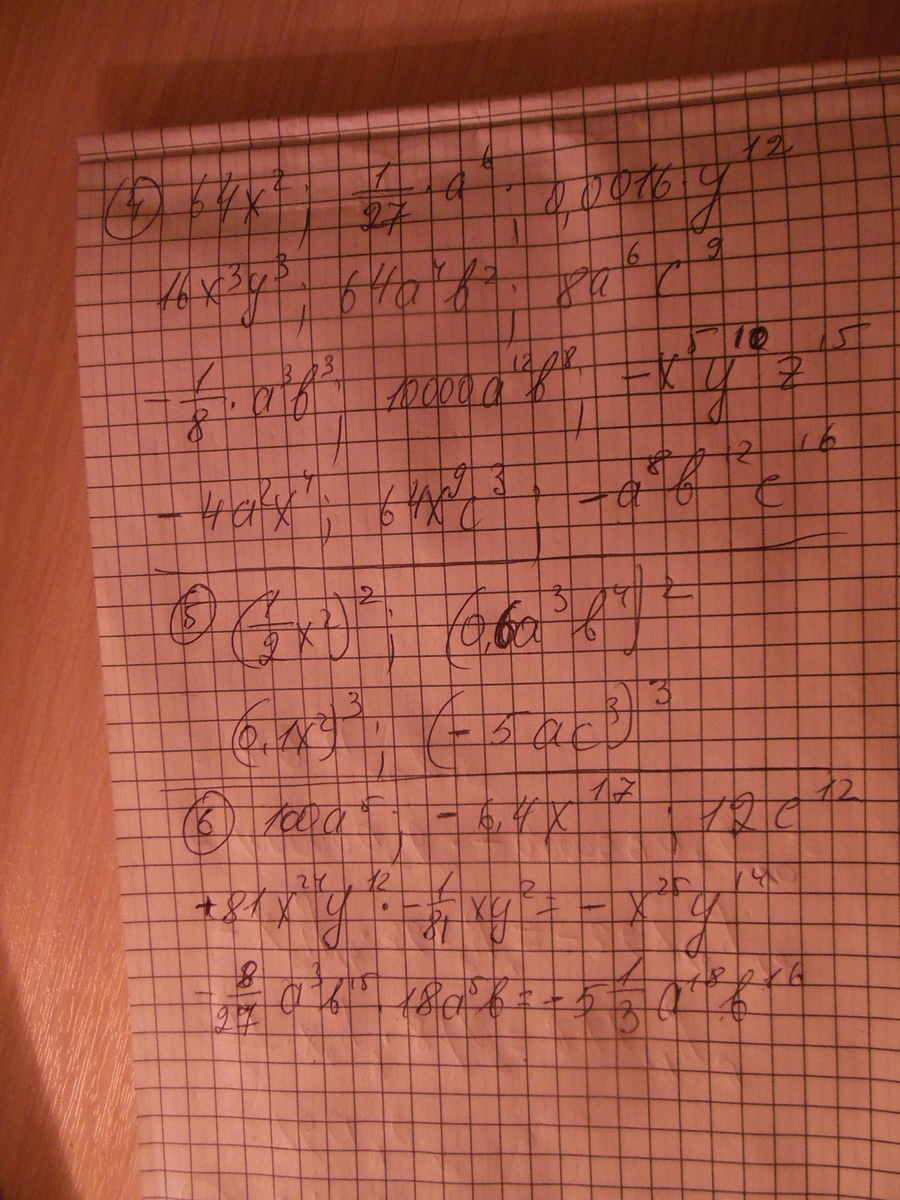 ④ 64x²; 1/27 · a⁶; 0,0016 · y¹²
16x³y³; 64a⁴b²; 8a⁶c⁹
- 1/8 · a³b³; 10000a¹²b⁸; -x⁵y¹⁰z¹⁵
- 4a²x⁴; 64x⁹c³; -a⁸b¹²c¹⁶
⑤ (1/2 x²)²; (0,6a³b⁴)²
(0,1x²)³; (-5ac³)³
⑥ 100a⁵; -6,4x¹⁷; 12c¹²
+81x²⁴y¹² · -1/81 xy² = - x²⁵y¹⁴
- 8/27 a³b¹⁵ · 18a⁵b = -5 1/3 a¹⁸b¹⁶